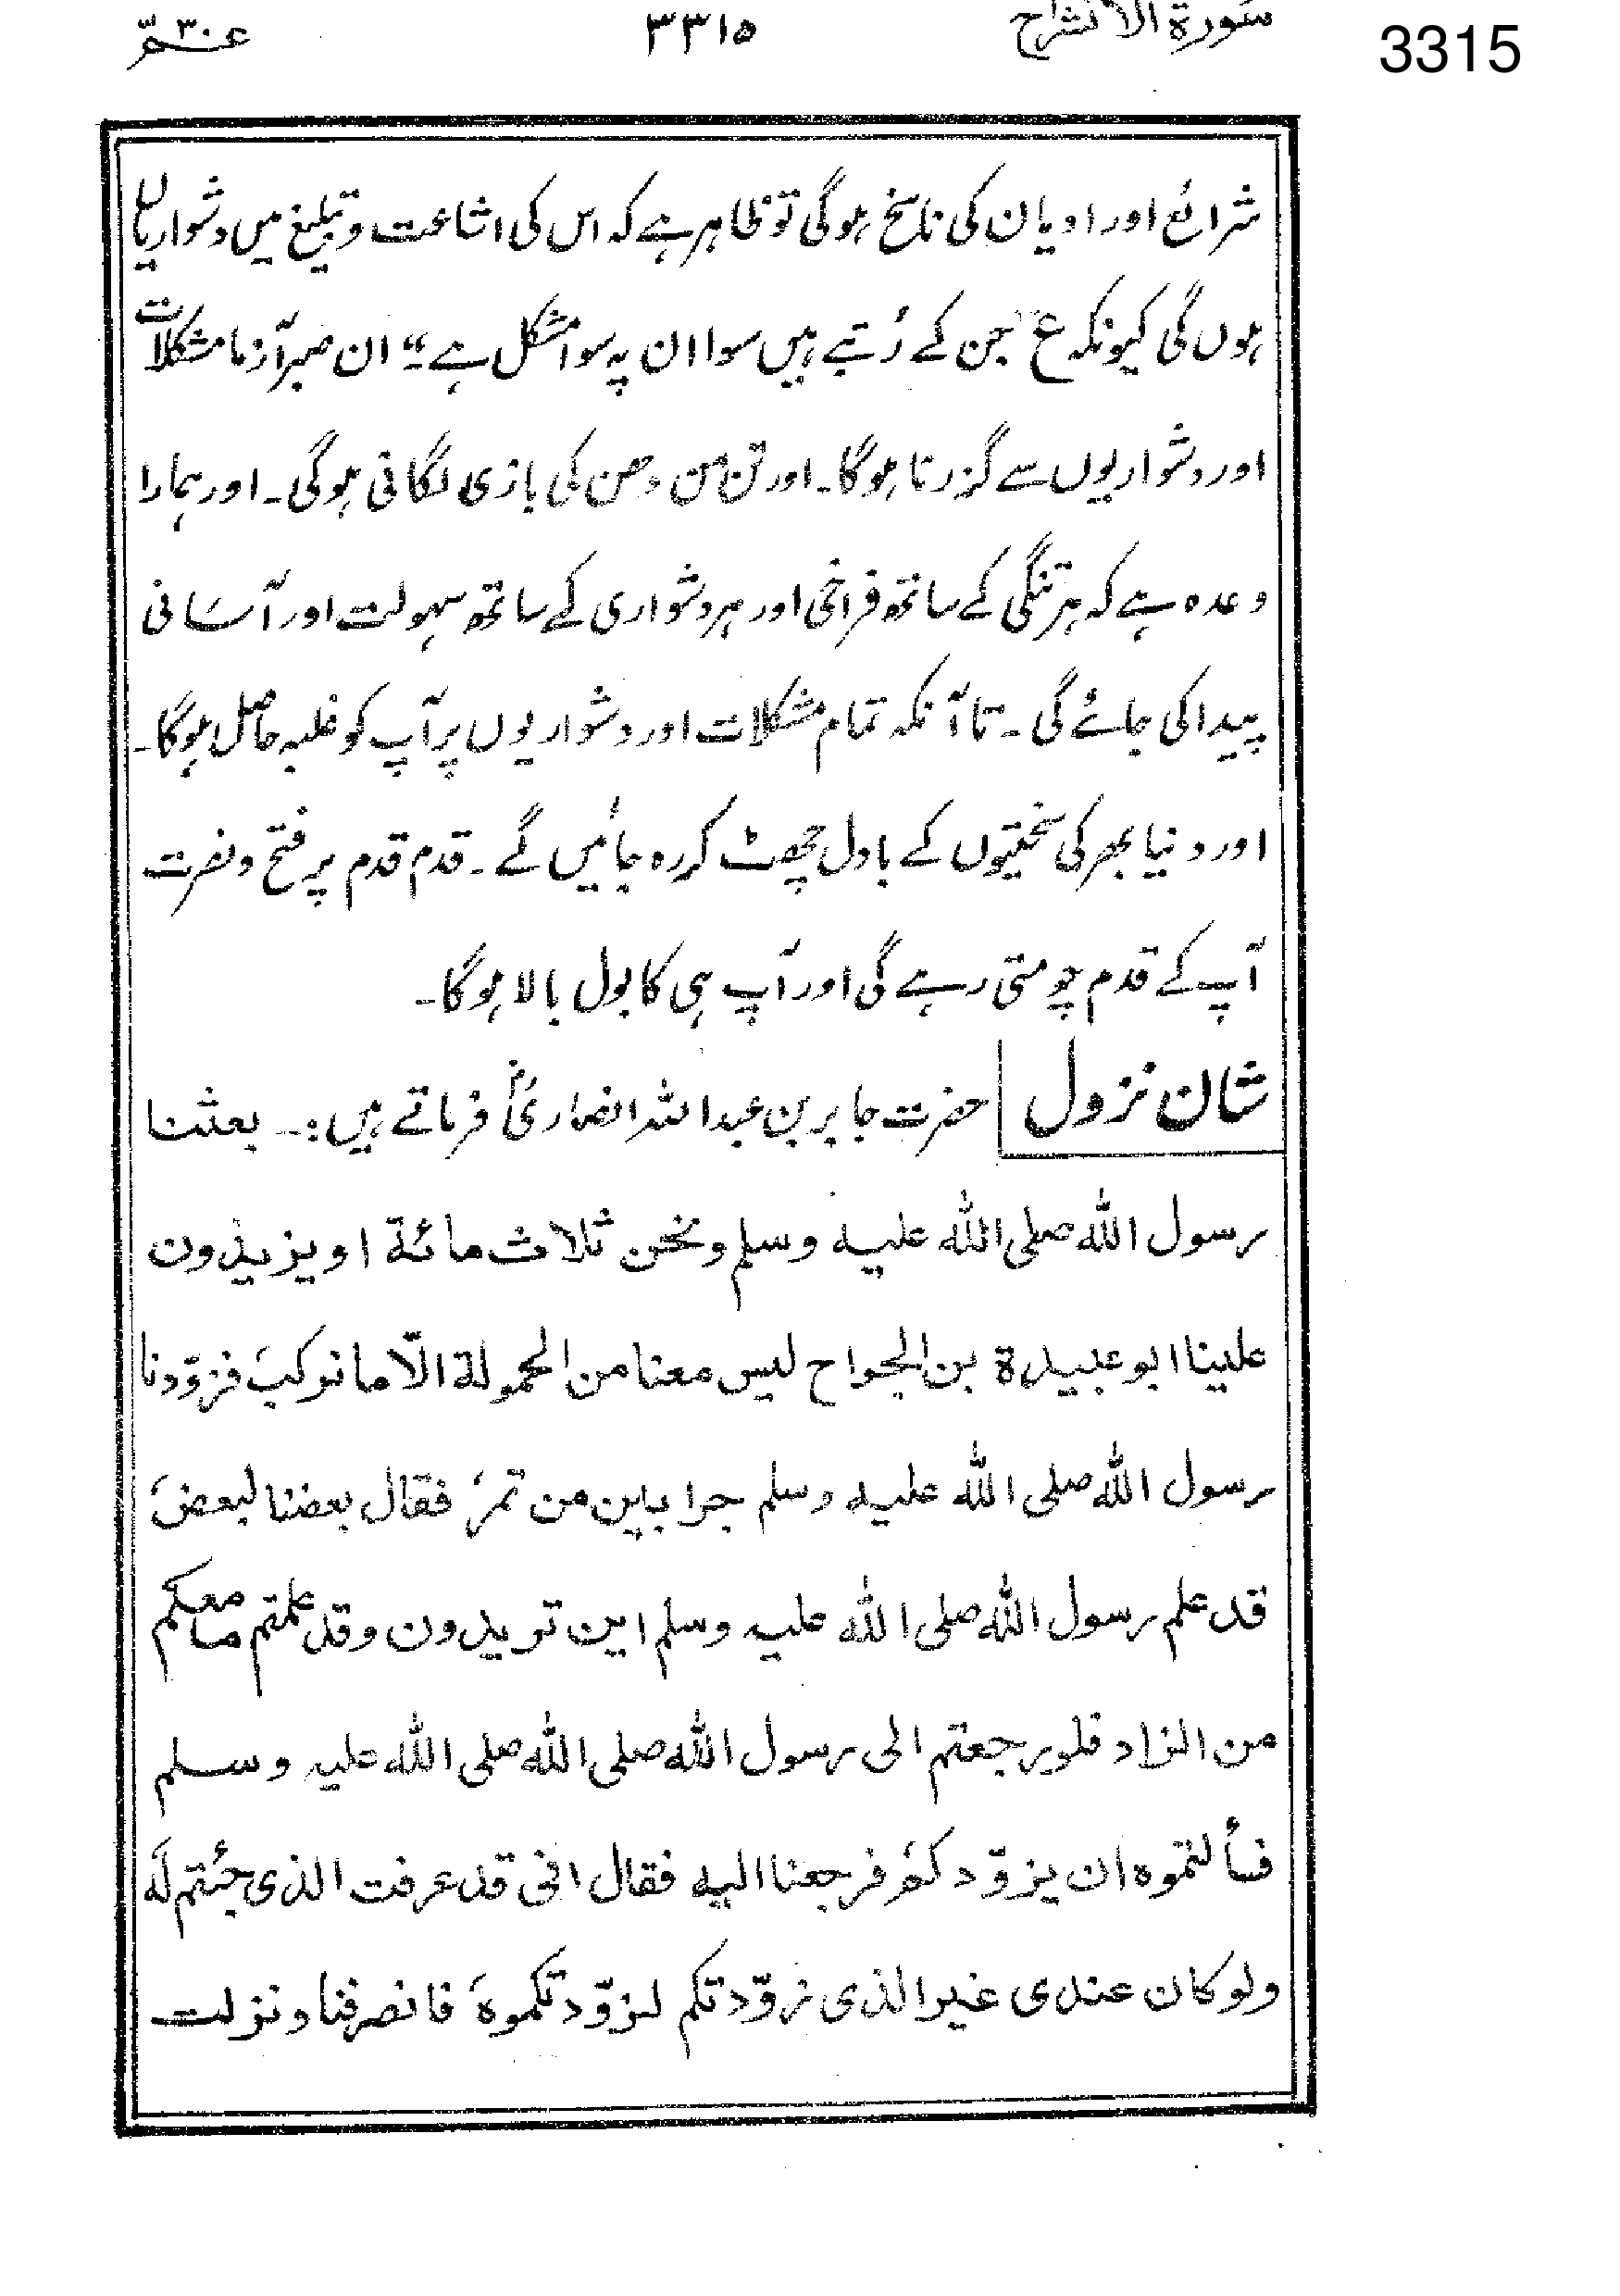 سورة الانشراح ٣٣١٥ عم ٣٠ 3315
شرائع اور ادیان کی ناسخ ہوگی تو ظاہر ہے کہ اس کی اشاعت و تبلیغ میں دشواریاں
ہوں گی کیونکہ ع "جن کے رُتبے ہیں سوا ان پہ سوا مشکل ہے" ان صبر آزما مشکلات
اور دشواریوں سے گزرنا ہوگا۔ اور تن من دھن کی بازی لگانی ہوگی۔ اور ہمارا
وعدہ ہے کہ ہر تنگی کے ساتھ فراخی اور ہر دشواری کے ساتھ سہولت اور آسانی
پیدا کی جائے گی۔ تا آنکہ تمام مشکلات اور دشواریوں پر آپ کو غلبہ حاصل ہوگا۔
اور دنیا بھر کی سختیوں کے بادل چھٹ کر رہ جائیں گے۔ قدم قدم پر فتح و نصرت
آپ کے قدم چومتی رہے گی اور آپ ہی کا بول بالا ہوگا۔
شان نزول حضرت جابر بن عبد اللہ انصاریؓ فرماتے ہیں:۔ بعثنا
رسول الله صلى الله عليه وسلم ونحن ثلاث مائة او يزيدون
علينا ابو عبيدة بن الجراح ليس معنا من الحمولة الّا ما نركبَ فزوّدنا
رسول الله صلى الله عليه وسلم جرابين من تمرَ فقال بعضنا لبعضَ
قد علم رسول الله صلى الله عليه وسلم اين تريدون وقد علمتم ما معكم
من الزاد فلو رجعتم الى رسول الله صلى الله صلى الله عليه وسلم
فسألتموه ان يزوّدكمَ فرجعنا اليه فقال انى قد عرفت الذى جئتم لهَ
ولو كان عندى غير الذى زوّدتكم لزوّدتكموهَ فانصرفنا ونزلت